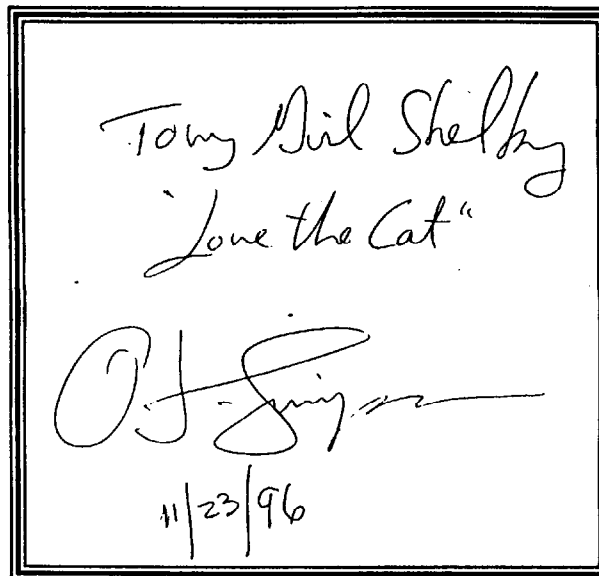 Tony Girl Shelby
"Love the Cat"
O.J. Simpson
11/23/96